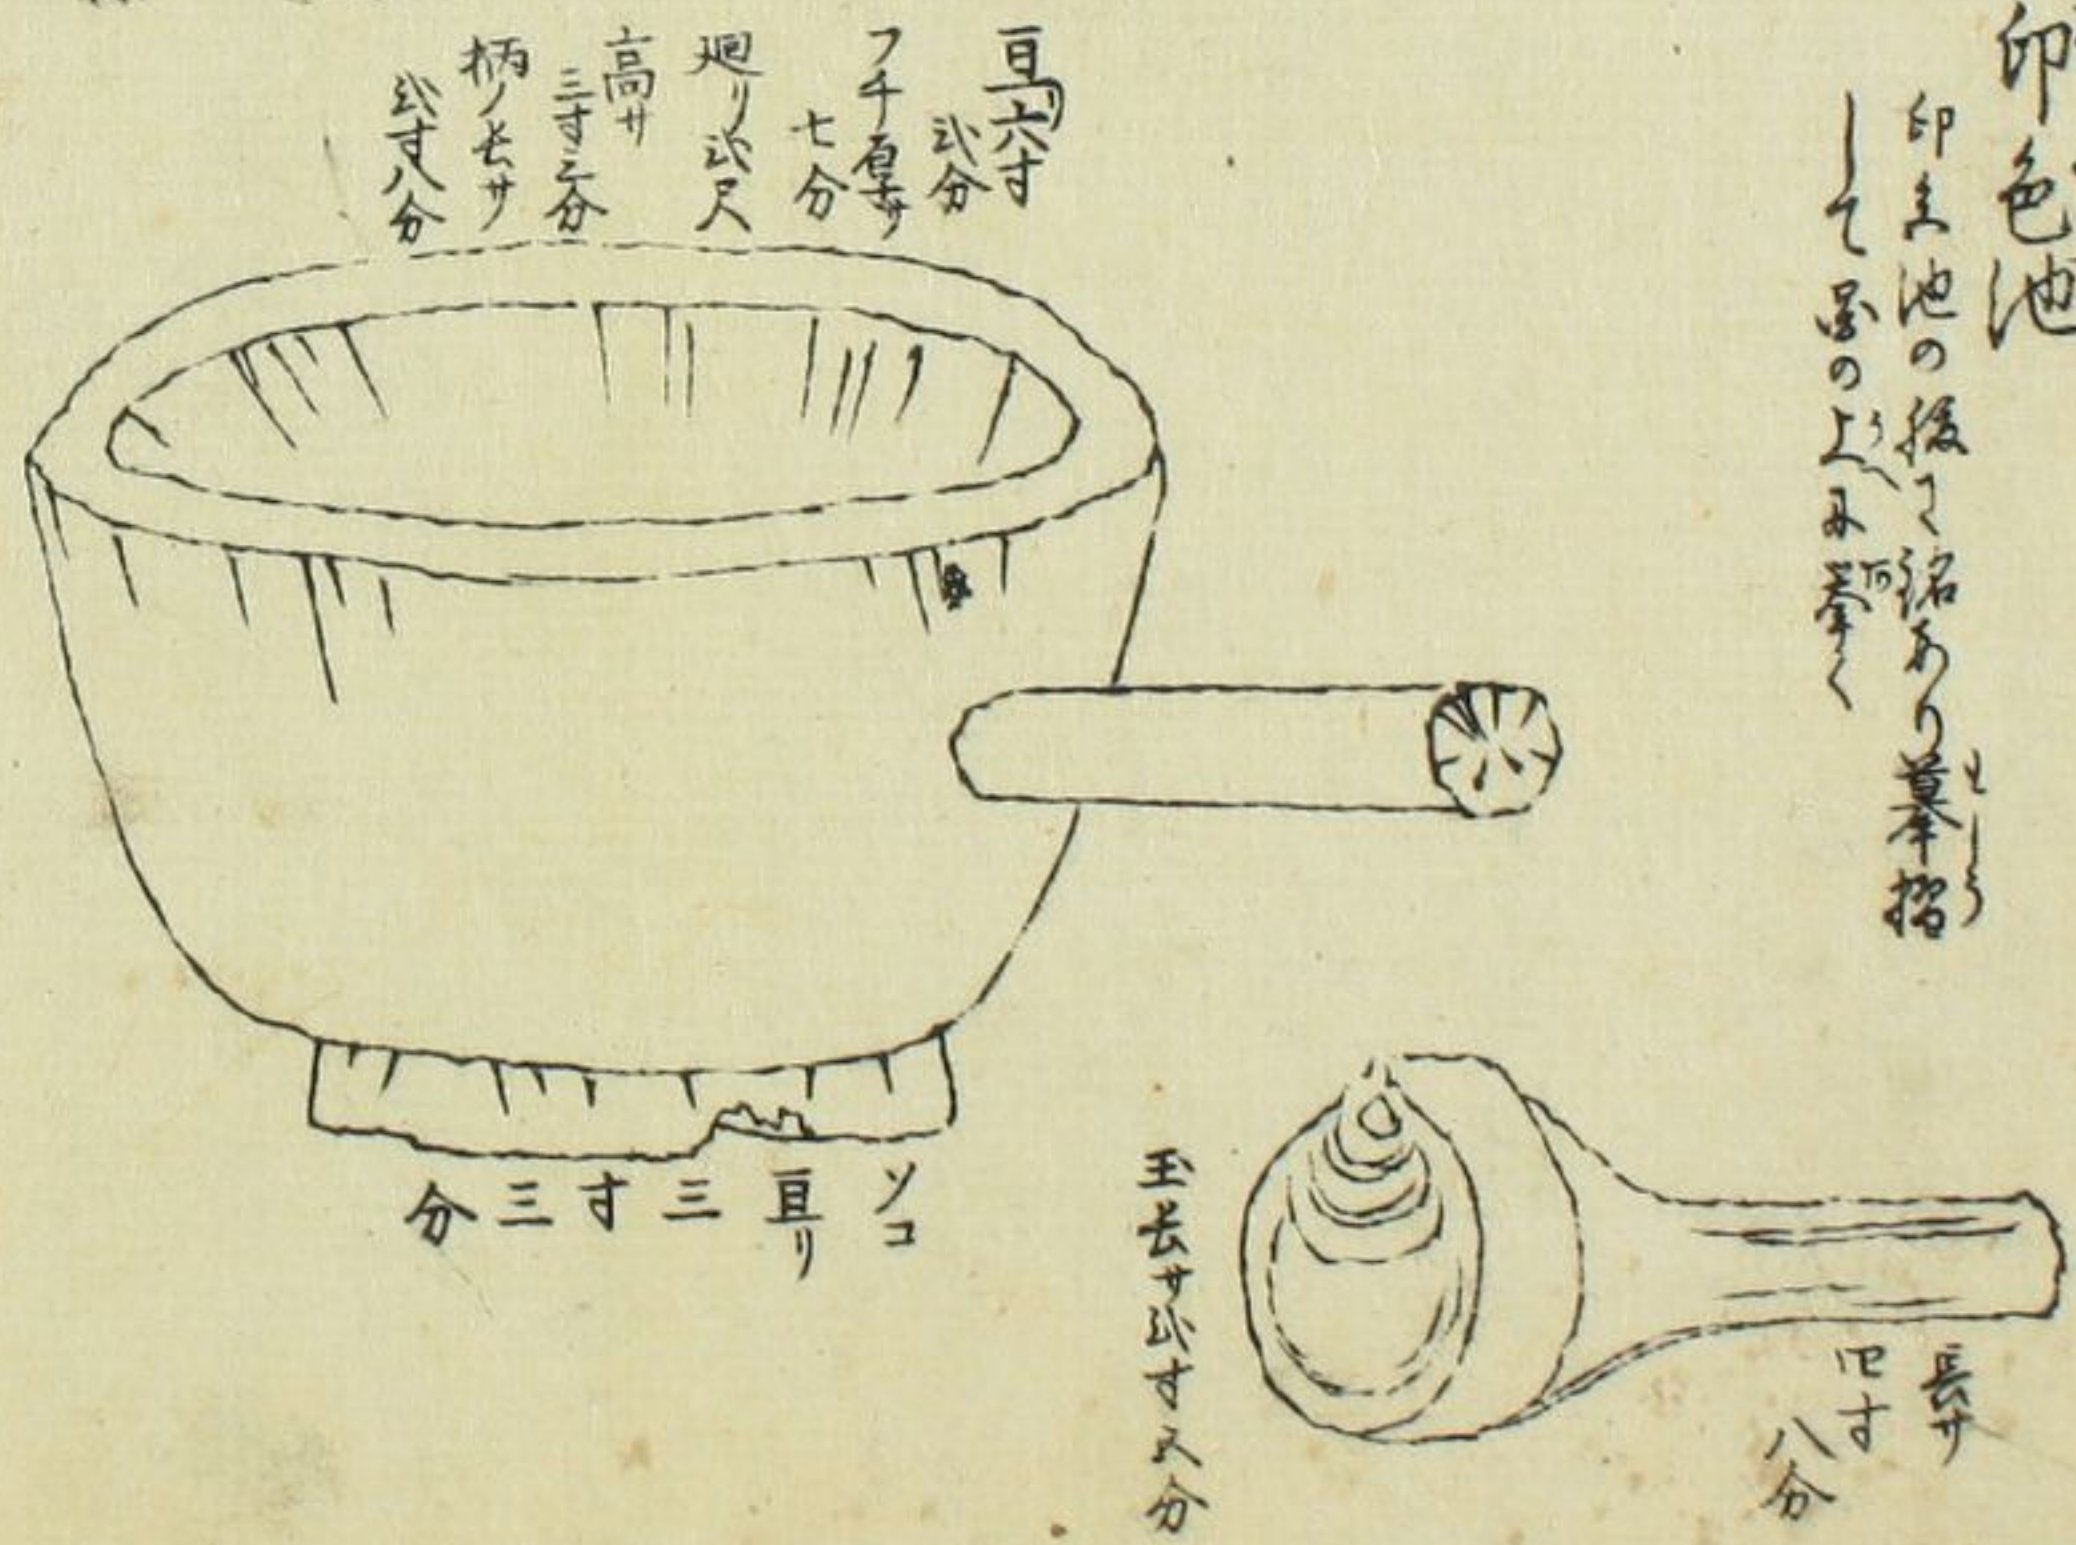 印色池
印色池の後に銘あり摹搨
して図の上に挙く
亘リ六寸
弐分
フチ厚サ
七分
廻リ弐尺
高サ
三寸三分
柄ノ長サ
弐寸八分
ソコ
亘リ
三寸三分
玉長サ弐寸五分
長サ
四寸
八分